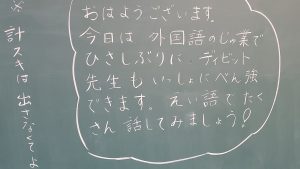 おはようございます。
今日は 外国語のじゅ業で
ひさしぶりに ディビット
先生も いっしょにべん強
できます。えい語で たく
さん 話してみましょう!
※ 計スキは 出さなくてよ